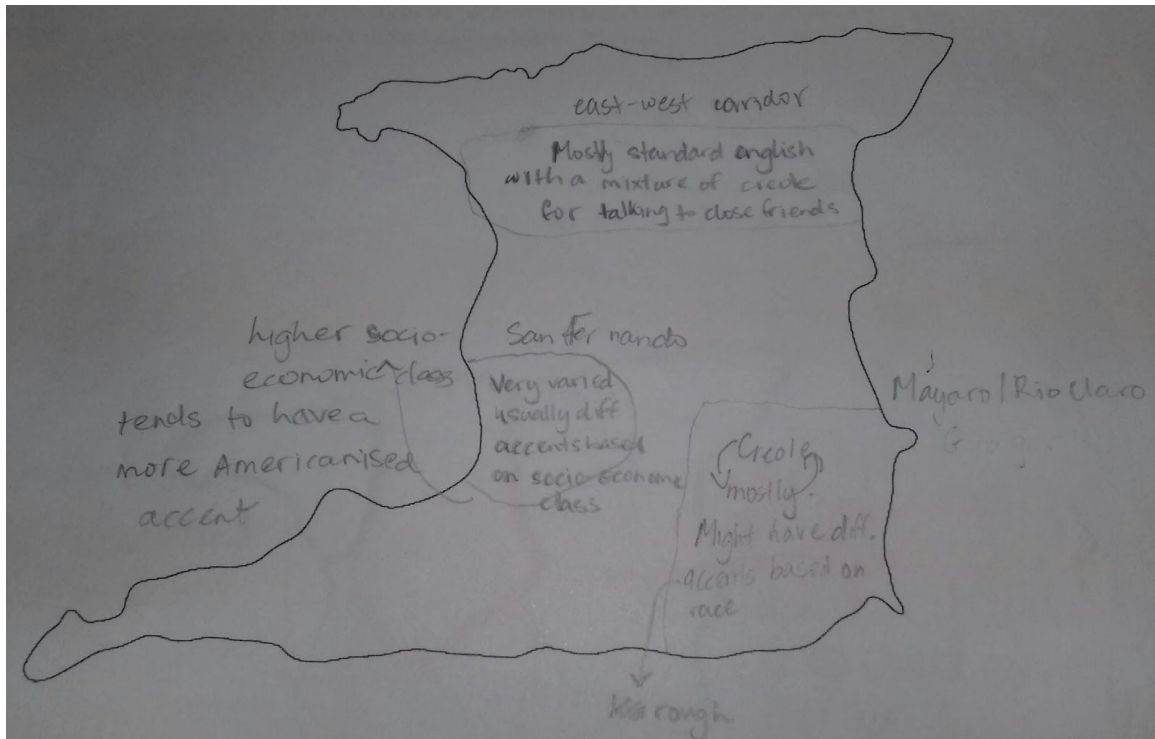 east-west corridor
Mostly standard english
with a mixture of creole
for talking to close friends
higher socio-
economic class
tends to have a
more Americanised
accent
San Fernando
Very varied
usually diff
accents based
on socio-econome
class
Mayaro/Rio Claro
Creole
mostly.
Might have diff.
accents based on
race
rough.